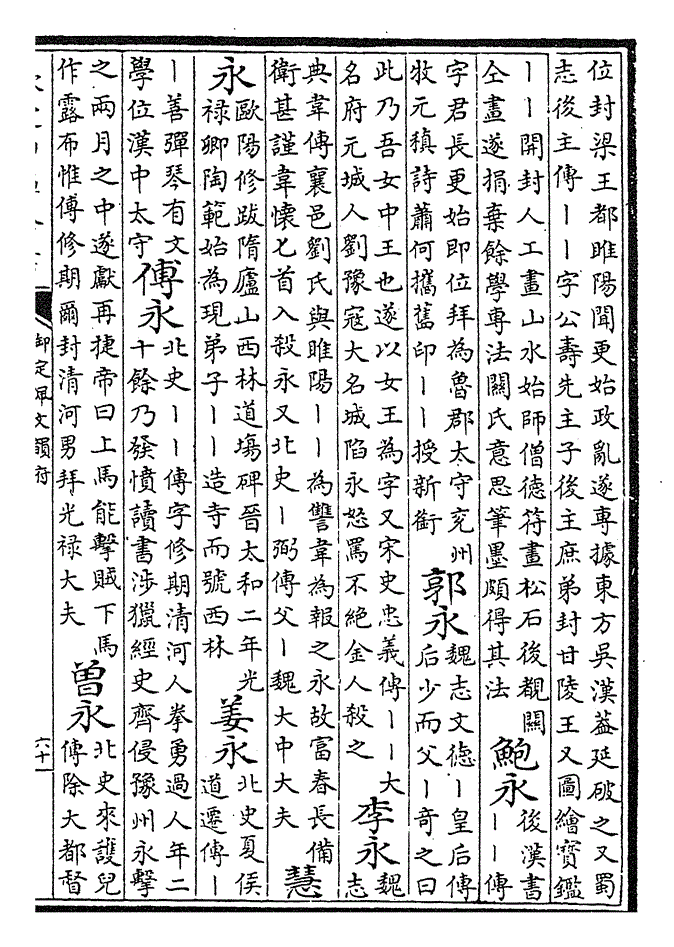 位封梁王都睢陽聞更始政亂遂專據東方吳漢葢延破之又蜀
志後主傳丨丨字公壽先主子後主庶弟封甘陵王又圖繪寳鑑
丨丨開封人工畫山水始師僧徳符畫松石後覩闗
仝畫遂捐棄餘學專法闗氏意思筆墨頗得其法
鮑永
後漢書
丨丨傳
字君長更始即位拜為魯郡太守兖州
牧元稹詩蕭何攜舊印丨丨授新銜
郭永
魏志文徳丨皇后傳
后少而父丨竒之曰
此乃吾女中王也遂以女王為字又宋史忠義傳丨丨大
名府元城人劉豫冦大名城陷永怒罵不絶金人殺之
李永
魏
志
典韋傳襄邑劉氏與睢陽丨丨為讐韋為報之永故富春長備
衛甚謹韋懷匕首入殺永又北史丨弼傳父丨魏大中大夫
慧
永
歐陽修跋隋廬山西林道塲碑晉太和二年光
禄卿陶範始為現弟子丨丨造寺而號西林
姜永
北史夏侯
道遷傳丨
丨善彈琴有文
學位漢中太守
傅永
北史丨丨傳字修期清河人拳勇過人年二
十餘乃發憤讀書涉獵經史齊侵豫州永擊
之兩月之中遂獻再捷帝曰上馬能擊賊下馬
作露布惟傅修期爾封清河男拜光禄大夫
曾永
北史來護兒
傳除大都督
御定佩文韻府
六十一